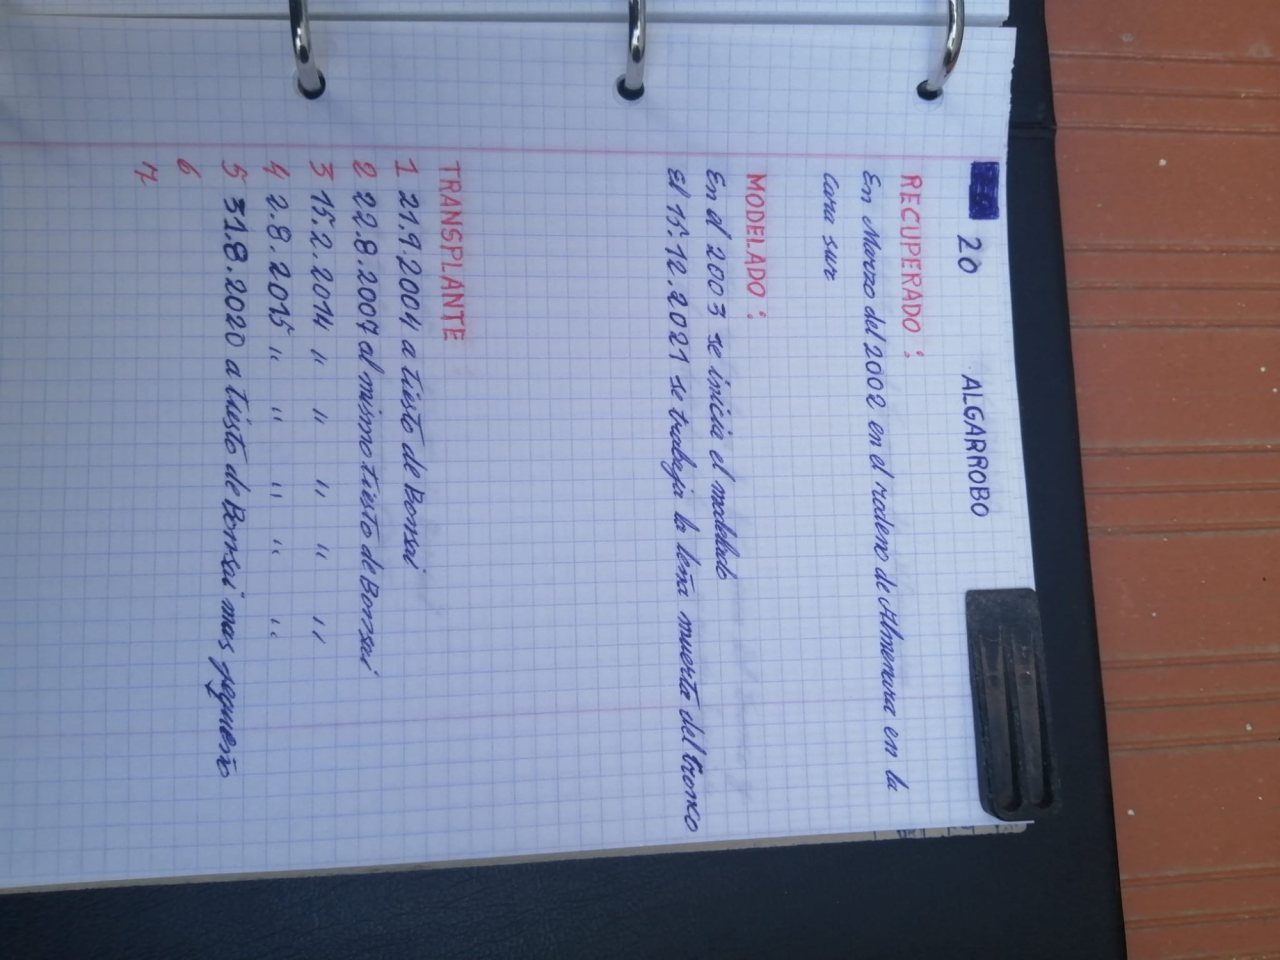 20 ALGARROBO
RECUPERADO :
En Marzo del 2002 en el rodeno de Almenara en la
cara sur
MODELADO :
En el 2003 se inicia el modelado
El 15.12.2021 se trabaja la leña muerta del tronco
TRANSPLANTE
1 21.9.2004 a tiesto de Bonsai
2 22.8.2007 al mismo tiesto de Bonsai
3 15.2.2014 " " " " "
4 2.8.2015 " " " " "
5 31.8.2020 a tiesto de Bonsai mas pequeño
6
7